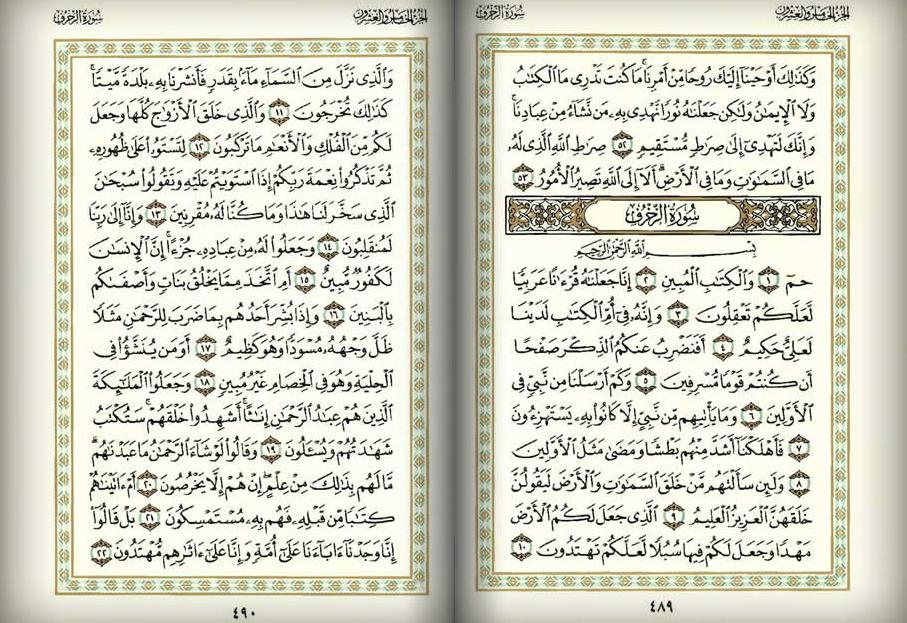 سورة الزخرف
الجزء الخامس والعشرون
وَكَذَٰلِكَ أَوْحَيْنَا إِلَيْكَ رُوحًا مِّنْ أَمْرِنَا ۚ مَا كُنتَ تَدْرِي مَا الْكِتَابُ
وَلَا الْإِيمَانُ وَلَٰكِن جَعَلْنَاهُ نُورًا نَّهْدِي بِهِ مَن نَّشَاءُ مِنْ عِبَادِنَا ۚ
وَإِنَّكَ لَتَهْدِي إِلَىٰ صِرَاطٍ مُّسْتَقِيمٍ ٥٢ صِرَاطِ اللَّهِ الَّذِي لَهُ
مَا فِي السَّمَاوَاتِ وَمَا فِي الْأَرْضِ ۗ أَلَا إِلَى اللَّهِ تَصِيرُ الْأُمُورُ ٥٣
سورة الزخرف
بسم الله الرحمن الرحيم
حم ١ وَالْكِتَابِ الْمُبِينِ ٢ إِنَّا جَعَلْنَاهُ قُرْآنًا عَرَبِيًّا
لَّعَلَّكُمْ تَعْقِلُونَ ٣ وَإِنَّهُ فِي أُمِّ الْكِتَابِ لَدَيْنَا
لَعَلِيٌّ حَكِيمٌ ٤ أَفَنَضْرِبُ عَنكُمُ الذِّكْرَ صَفْحًا
أَن كُنتُمْ قَوْمًا مُّسْرِفِينَ ٥ وَكَمْ أَرْسَلْنَا مِن نَّبِيٍّ فِي
الْأَوَّلِينَ ٦ وَمَا يَأْتِيهِم مِّن نَّبِيٍّ إِلَّا كَانُوا بِهِ يَسْتَهْزِئُونَ
٧ فَأَهْلَكْنَا أَشَدَّ مِنْهُم بَطْشًا وَمَضَىٰ مَثَلُ الْأَوَّلِينَ
٨ وَلَئِن سَأَلْتَهُم مَّنْ خَلَقَ السَّمَاوَاتِ وَالْأَرْضَ لَيَقُولُنَّ
خَلَقَهُنَّ الْعَزِيزُ الْعَلِيمُ ٩ الَّذِي جَعَلَ لَكُمُ الْأَرْضَ
مَهْدًا وَجَعَلَ لَكُمْ فِيهَا سُبُلًا لَّعَلَّكُمْ تَهْتَدُونَ ١٠
٤٨٩
الجزء الخامس والعشرون
سورة الزخرف
وَالَّذِي نَزَّلَ مِنَ السَّمَاءِ مَاءً بِقَدَرٍ فَأَنشَرْنَا بِهِ بَلْدَةً مَّيْتًا ۚ
كَذَٰلِكَ تُخْرَجُونَ ١١ وَالَّذِي خَلَقَ الْأَزْوَاجَ كُلَّهَا وَجَعَلَ
لَكُم مِّنَ الْفُلْكِ وَالْأَنْعَامِ مَا تَرْكَبُونَ ١٢ لِتَسْتَوُوا عَلَىٰ ظُهُورِهِ
ثُمَّ تَذْكُرُوا نِعْمَةَ رَبِّكُمْ إِذَا اسْتَوَيْتُمْ عَلَيْهِ وَتَقُولُوا سُبْحَانَ
الَّذِي سَخَّرَ لَنَا هَٰذَا وَمَا كُنَّا لَهُ مُقْرِنِينَ ١٣ وَإِنَّا إِلَىٰ رَبِّنَا
لَمُنقَلِبُونَ ١٤ وَجَعَلُوا لَهُ مِنْ عِبَادِهِ جُزْءًا ۚ إِنَّ الْإِنسَانَ
لَكَفُورٌ مُّبِينٌ ١٥ أَمِ اتَّخَذَ مِمَّا يَخْلُقُ بَنَاتٍ وَأَصْفَاكُم
بِالْبَنِينَ ١٦ وَإِذَا بُشِّرَ أَحَدُهُم بِمَا ضَرَبَ لِلرَّحْمَٰنِ مَثَلًا
ظَلَّ وَجْهُهُ مُسْوَدًّا وَهُوَ كَظِيمٌ ١٧ أَوَمَن يُنَشَّأُ فِي
الْحِلْيَةِ وَهُوَ فِي الْخِصَامِ غَيْرُ مُبِينٍ ١٨ وَجَعَلُوا الْمَلَائِكَةَ
الَّذِينَ هُمْ عِبَادُ الرَّحْمَٰنِ إِنَاثًا ۚ أَشَهِدُوا خَلْقَهُمْ ۚ سَتُكْتَبُ
شَهَادَتُهُمْ وَيُسْأَلُونَ ١٩ وَقَالُوا لَوْ شَاءَ الرَّحْمَٰنُ مَا عَبَدْنَاهُم ۗ
مَّا لَهُم بِذَٰلِكَ مِنْ عِلْمٍ ۖ إِنْ هُمْ إِلَّا يَخْرُصُونَ ٢٠ أَمْ آتَيْنَاهُمْ
كِتَابًا مِّن قَبْلِهِ فَهُم بِهِ مُسْتَمْسِكُونَ ٢١ بَلْ قَالُوا
إِنَّا وَجَدْنَا آبَاءَنَا عَلَىٰ أُمَّةٍ وَإِنَّا عَلَىٰ آثَارِهِم مُّهْتَدُونَ ٢٢
٤٩٠